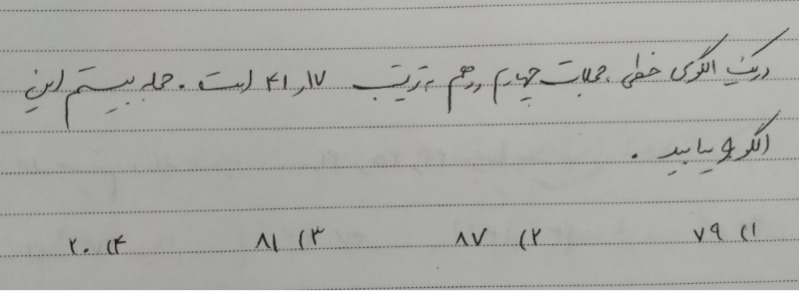 در یک الگوی خطی، جملات چهارم و دهم به ترتیب ۱۷ و ۴۱ است. جمله بیستم این
الگو را بیابید.
۱) ۷۹ ۲) ۸۷ ۳) ۸۱ ۴) ۲۰